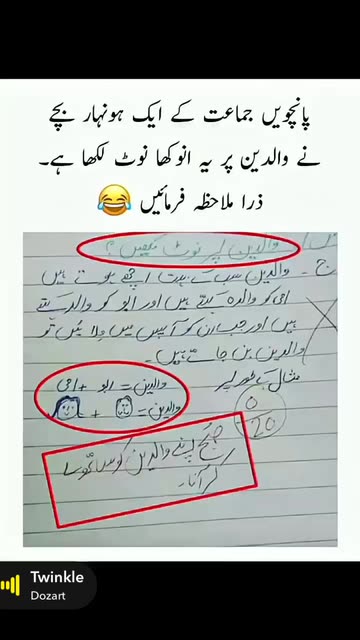 پانچویں جماعت کے ایک ہونہار بچے
نے والدین پر یہ انوکھا نوٹ لکھا ہے۔
ذرا ملاحظہ فرمائیں 😂
والدین پر نوٹ لکھیں؟
ج۔ والدین سب کے بہت اچھے ہوتے ہیں
امی کو والدہ کہتے ہیں اور ابو کو والد کہتے
ہیں اور جب ان کو آپس میں ملائیں تو
والدین بن جاتے ہیں۔
مثال کے طور پر
والدین = ابو + امی
والدین = +
0
20
صبح اپنے والدین کو ساتھ لے
کر آنا۔
Twinkle
Dozart